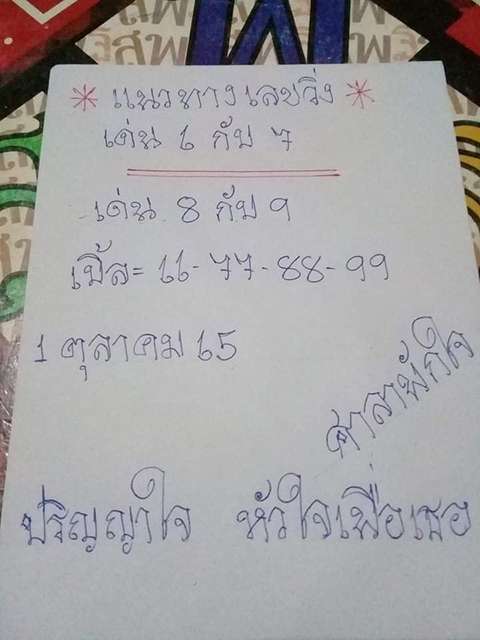 * แนวทางเลขวิ่ง *
เด่น 6 กับ 7
เด่น 8 กับ 9
เบิ้ล= 66-77-88-99
1 ตุลาคม 65
ศาลาพักใจ
ปริญญาใจ หัวใจเพื่อเธอ